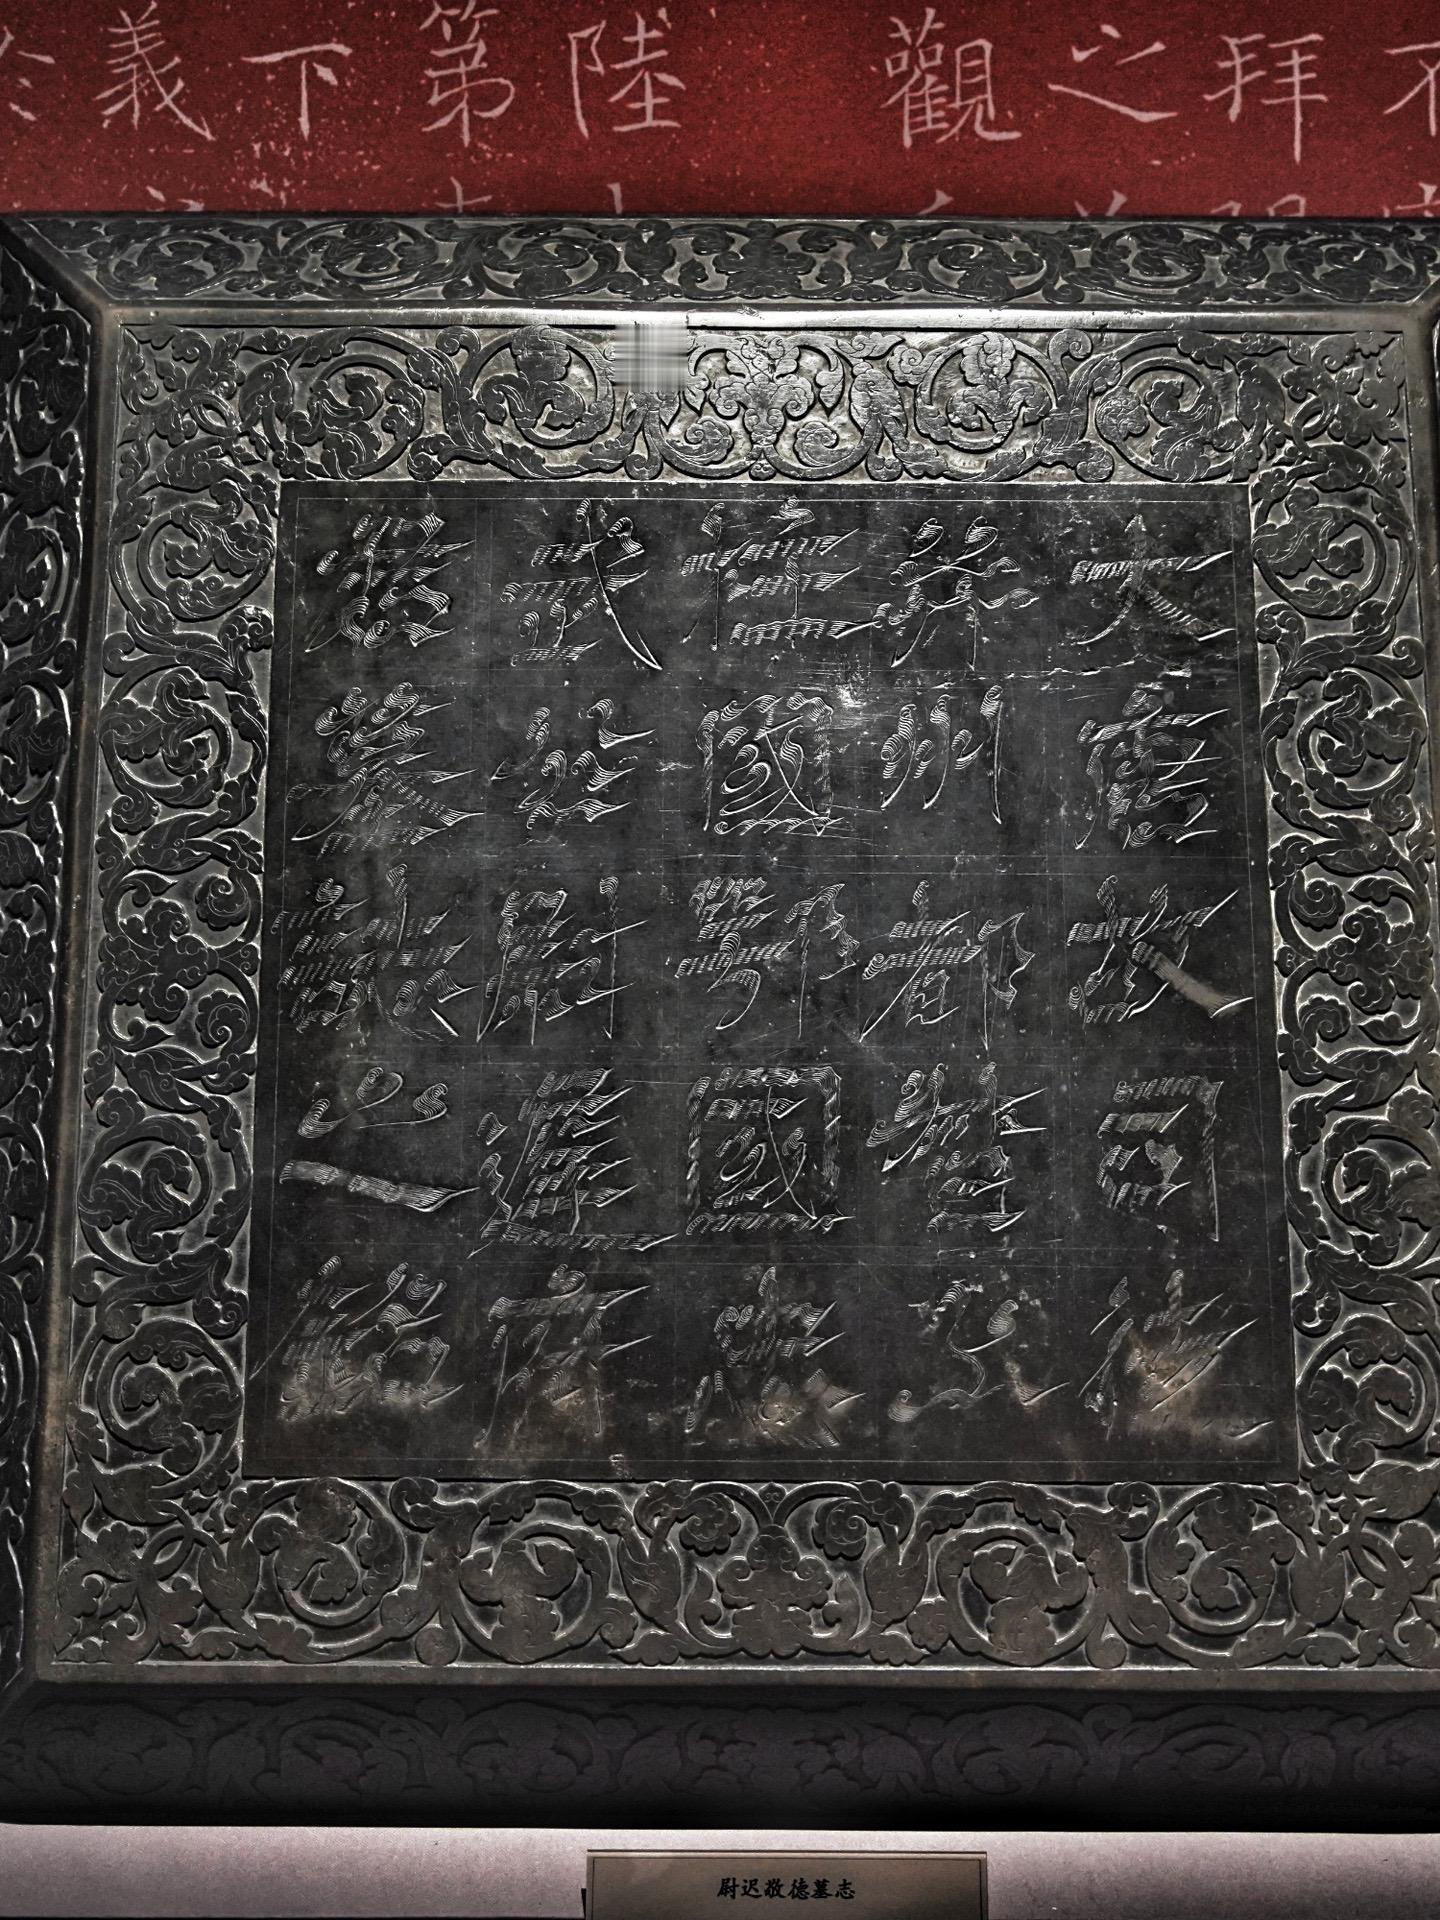 義下第陸觀之拜
大唐故司徒
并州都督上
柱國鄂國忠
武公尉遲府
君墓誌之銘
尉迟敬德墓志